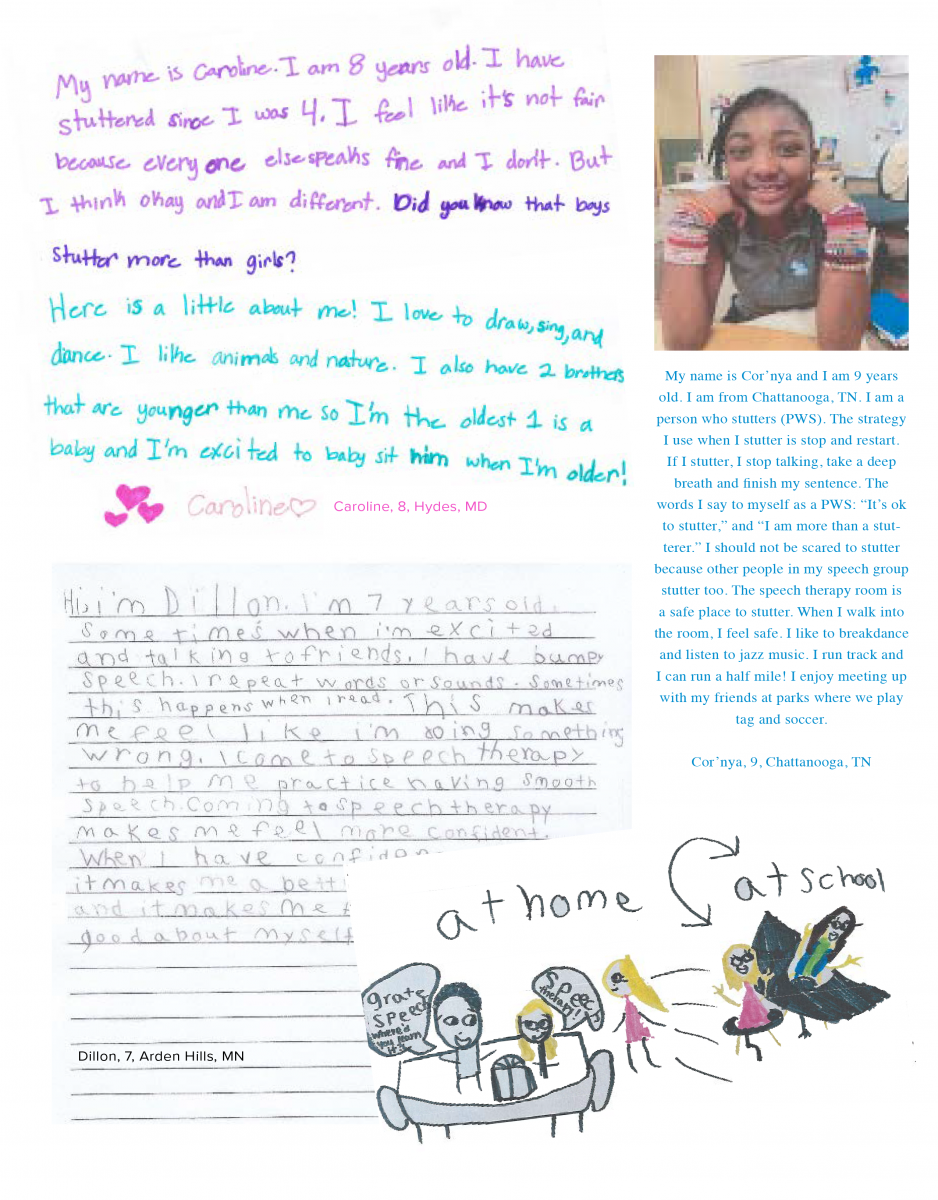 My name is Caroline. I am 8 years old. I have
stuttered since I was 4. I feel like it's not fair
because every one else speaks fine and I don't. But
I think okay and I am different. Did you know that boys
stutter more than girls?
Here is a little about me! I love to draw, sing, and
dance. I like animals and nature. I also have 2 brothers
that are younger than me so I'm the oldest 1 is a
baby and I'm excited to baby sit him when I'm older!
Caroline
Caroline, 8, Hydes, MD
My name is Cor'nya and I am 9 years
old. I am from Chattanooga, TN. I am a
person who stutters (PWS). The strategy
I use when I stutter is stop and restart.
If I stutter, I stop talking, take a deep
breath and finish my sentence. The
words I say to myself as a PWS: “It's ok
to stutter,” and “I am more than a stut-
terer.” I should not be scared to stutter
because other people in my speech group
stutter too. The speech therapy room is
a safe place to stutter. When I walk into
the room, I feel safe. I like to breakdance
and listen to jazz music. I run track and
I can run a half mile! I enjoy meeting up
with my friends at parks where we play
tag and soccer.
Cor'nya, 9, Chattanooga, TN
Hi, i'm Dillon. I'm 7 years old.
Some times when i'm excited
and talking to friends, I have bumpy
speech. I repeat words or sounds. Sometimes
this happens when i read. This makes
me feel like i'm doing something
wrong. I come to speech therapy
to help me practice having smooth
speech. Coming to speech therapy
makes me feel more confident.
When I have
it makes me a
and it makes me
good about myself
Dillon, 7, Arden Hills, MN
at home
at school
grate
speech
where'd
you learn
it?
speech
therapy!